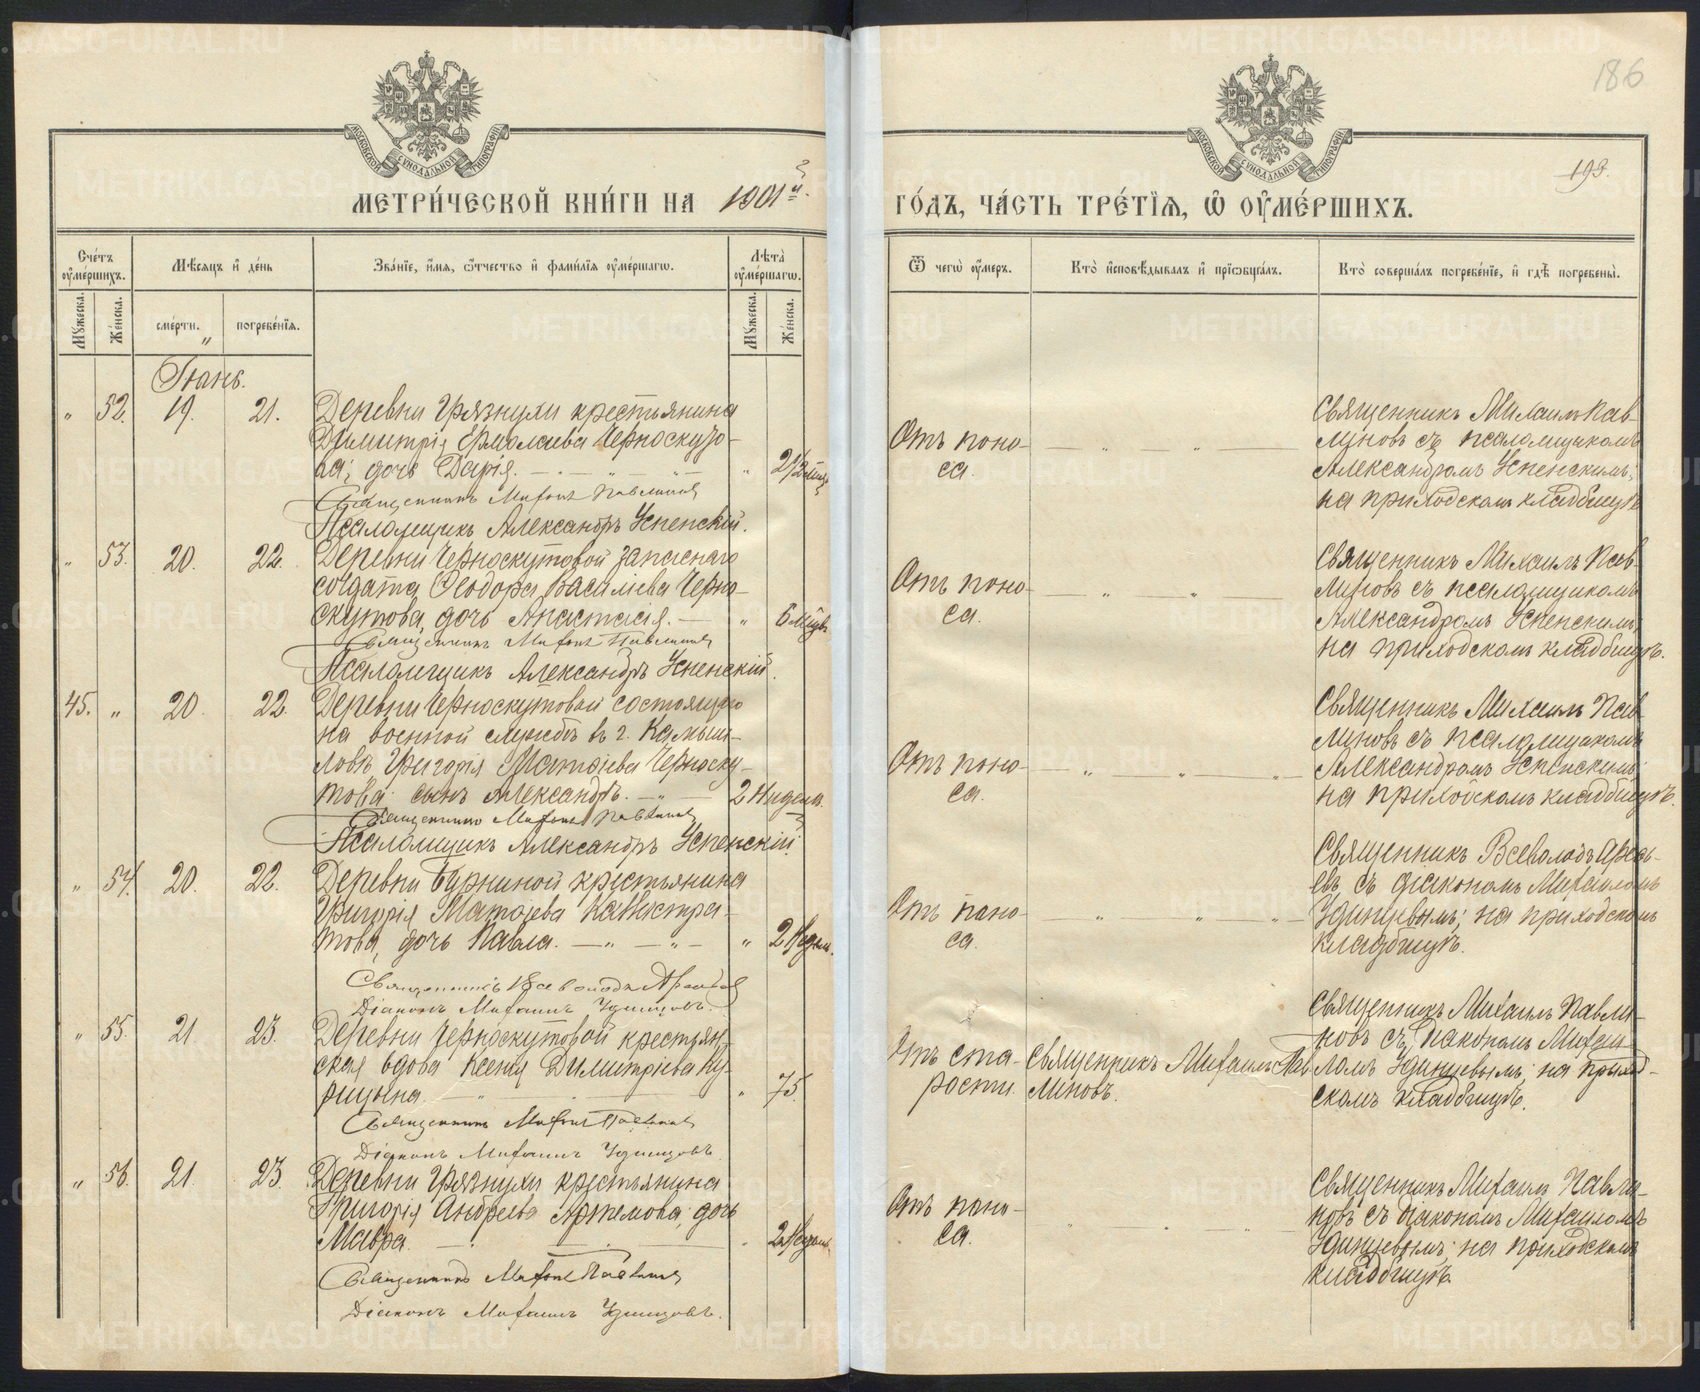 186
193.
МОСКОВСКОЙ СѴНОДАЛЬНОЙ ТИПОГРАФІИ
МОСКОВСКОЙ СѴНОДАЛЬНОЙ ТИПОГРАФІИ
МЕТРИ́ЧЕСКОЙ КНИ́ГИ НА 1901й.
ГО́ДЪ, ЧА́СТЬ ТРЕ́ТЇѦ, Ѿ ОУ҆МЕ́РШИХЪ.
Сче́тъ оу҆ме́ршихъ.
Мѣ́сяцъ и҆ де́нь
Зва́нїе, и҆́мя, ѻ҆́тчество и҆ фами́лїя оу҆ме́ршагѡ.
Лѣ́та оу҆ме́ршагѡ.
Ѿ чегѡ̀ оу҆́меръ.
Кто̀ и҆сповѣ́дывалъ и҆ прїѡбща́лъ.
Кто̀ соверша́лъ погребе́нїе, и҆ гдѣ̀ погребены̀.
Му́жеска.
Же́нска.
сме́рти.
погребе́нїя.
Му́жеска.
Же́нска.
Іюнь.
" 52. 19. 21. Деревни Грязнухи крестьянина
Димитрія Ермолаева Черноскуто-
ва, дочь Дарія. " 2½ мѣс
Священникъ Михаилъ Павлиновъ
Псаломщикъ Александръ Успенскій.
Отъ поно-
са.
Священникъ Михаилъ Пав-
линовъ съ псаломщикомъ
Александромъ Успенскимъ;
на приходскомъ кладбищѣ
" 53. 20. 22. Деревни Черноскутовой запаснаго
солдата Ѳеодора Василіева Черно-
скутова, дочь Анастасія. " 6 мѣсц
Священникъ Михаилъ Павлиновъ
Псаломщикъ Александръ Успенскій.
Отъ поно-
са.
Священникъ Михаилъ Пав-
линовъ съ псаломщикомъ
Александромъ Успенскимъ;
на приходскомъ кладбищѣ.
45. " 20. 22. Деревни Черноскутовой состоящаго
на военной службѣ въ г. Камыш-
ловѣ Григорія Матѳіева Черноску-
това сынъ Александръ. 2 Недѣл.
Священникъ Михаилъ Павлиновъ
Псаломщикъ Александръ Успенскій.
Отъ поно-
са.
Священникъ Михаилъ Пав-
линовъ съ псаломщикомъ
Александромъ Успенскимъ:
на приходскомъ кладбищѣ.
" 54. 20. 22. Деревни Бурниной крестьянина
Григорія Матѳіева Кавыстра-
това, дочь Павла. " 2 Недѣл.
Священникъ Всеволодъ
Діаконъ Михаилъ Удинцовъ.
Отъ поно-
са.
Священникъ Всеволодъ
евъ съ діакономъ Михаиломъ
Удинцевымъ; на приходскомъ
кладбищѣ.
" 55. 21. 23. Деревни Черноскутовой крестьян-
ская вдова Ксенія Димитріева Ку-
рицына. " 75.
Священникъ Михаилъ Павлиновъ
Діаконъ Михаилъ Удинцовъ.
Отъ ста-
рости.
Священникъ Михаилъ Пав-
линовъ.
Священникъ Михаилъ Павли-
новъ съ діакономъ Михаи-
ломъ Удинцевымъ; на приход-
скомъ кладбищѣ.
" 56. 21. 23. Деревни Грязнухи крестьянина
Григорія Андреева Артемова, дочь
Мавра. 2 Недѣл
Священникъ Михаилъ Павлиновъ
Діаконъ Михаилъ Удинцовъ.
Отъ поно-
са.
Священникъ Михаилъ Павли-
новъ съ діакономъ Михаиломъ
Удинцевымъ; на приходскомъ
кладбищѣ.
METRIKI.GASO-URAL.RU